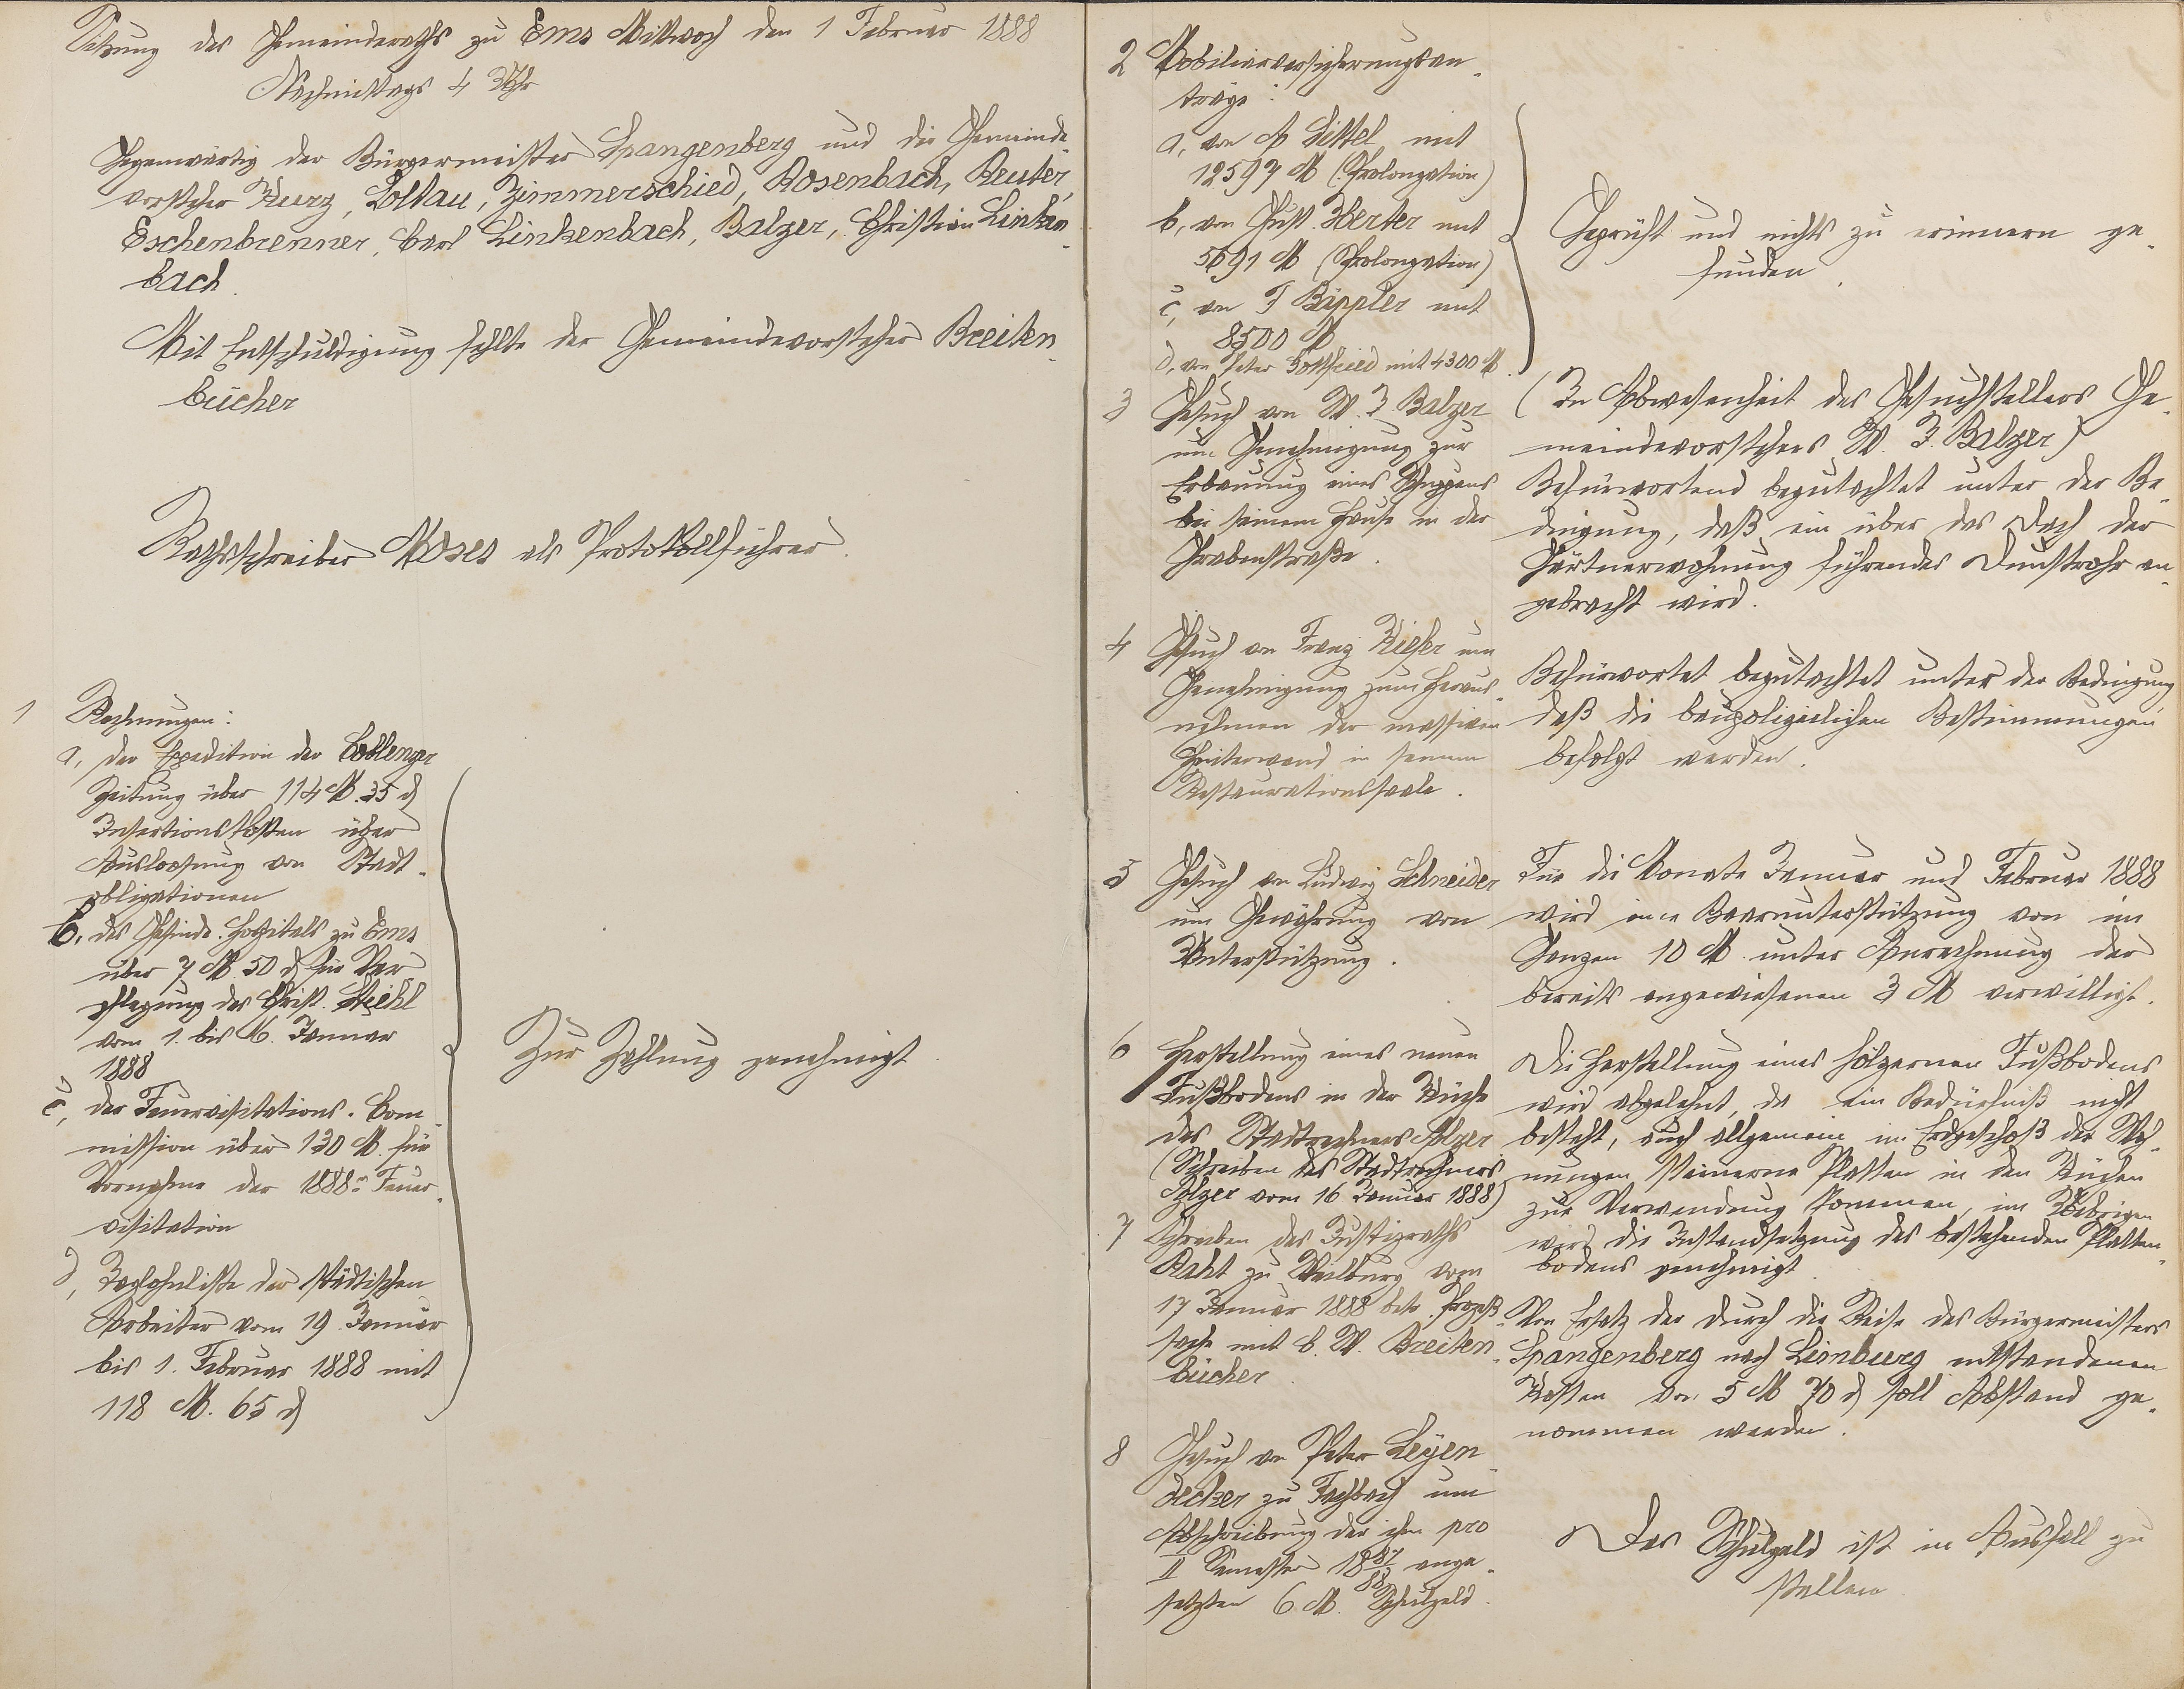 Sitzung des Gemeinderaths zu Ems Mittwoch den 1 Februar 1888
Nachmittags 4 Uhr
Gegenwärtig der Bürgermeister Spangenberg und die Gemeinde-
vorsteher Kurz, Loltau, Zimmerschied, Rosenbach, Reuter,
Eschenbrenner, Carl Linkenbach, Balzer, Christian Linken-
bach.
Mit Entschuldigung fehlte der Gemeindevorsteher Breiten-
bücher
Rathsschreiber Moses als Protokollführer.
1 Rechnungen:
a, der Expedition der Coblenzer
Zeitung über 114 M. 35 d
Insertionskosten über
Ausloosung von Stadt-
obligationen
b, des Gesinde-Hospitals zu Ems
über 7 M. 50 d für Ver-
pflegung des Christ. Stiehl
vom 1. bis 16. Januar
1888
c, der Feuervisitations-Com-
mission über 130 M. für
Vornahme der 1888r Feuer-
visitation
d, Taglohnliste der städtischen
Arbeiter vom 19 Januar
bis 1. Februar 1888 mit
118 M. 65 d
Zur Zahlung genehmigt.
2 Mobiliarversicherungsan-
träge:
a, von A Dittel mit
12597 M (Prolongation)
b, von Gust. Herter mit
5691 M (Prolongation)
c, von F Bippler mit
8500 M
d, von Peter Gottfried mit 4300 M.
Geprüft und nichts zu erinnern ge-
funden.
3 Gesuch von W. F. Balzer
um Genehmigung zur
Erbauung eines Schuppens
bei seinem Hause in der
Grabenstraße.
(In Abwesenheit des Gesuchstellers Ge-
meindevorstehers W. F. Balzer)
Befürwortend begutachtet unter der Be-
dingung, daß ein über das Dach der
Gärtnerwohnung führendes Dunstrohr an-
gebracht wird.
4 Gesuch von Franz Kiefer um
Genehmigung zum Heraus-
nehmen der massiven
Hinterwand in seinem
Restaurationssaale.
Befürwortet begutachtet unter der Bedingung
daß die baupolizeilichen Bestimmungen
befolgt werden.
5 Gesuch von Ludwig Schneider
um Gewährung von
Unterstützung.
Für die Monate Januar und Februar 1888
wird eine Baarunterstützung von im
Ganzen 10 M. unter Anrechnung der
bereits angewiesenen 3 M verwilligt.
6 Herstellung eines neuen
Fußbodens in der Küche
des Stadtrechners Polzer
(Schreiben des Stadtrechners
Polzer vom 16 Januar 1888)
Die Herstellung eines hölzernen Fußbodens
wird abgelehnt, da ein Bedürfniß nicht
besteht, auch allgemein im Erdgeschoß der Woh-
nungen steinerne Platten in den Küchen
zur Verwendung kommen, im Uebrigen
wird die Instandsetzung des bestehenden Platten-
bodens genehmigt.
7 Schreiben des Justizraths
Raht zu Weilburg vom
17 Januar 1888 betr. Prozeß-
sache mit C. W. Breiten-
bücher.
Von Ersatz der durch die Reise des Bürgermeisters
Spangenberg nach Limburg entstandenen
Kosten von 5 M 70 d soll Abstand ge-
nommen werden.
8 Gesuch von Peter Leyen-
decker zu Fachbach um
Abschreibung der ihm pro
II Semester 1887/88 ange-
setzten 6 M. Schulgeld.
Das Schulgeld ist in Ausfall zu
stellen